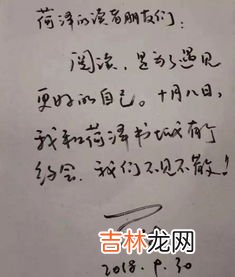 荷泽的读者朋友们:
阅读,是为了遇见
更好的自己。十月八日,
我和荷泽书城有个
约会.我们不见不散!
2018.9.30
吉林龙网